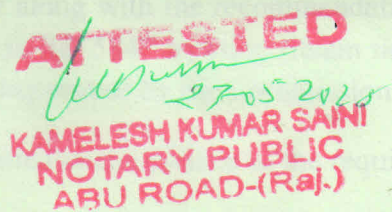 ATTESTED
27-05-2020
KAMELESH KUMAR SAINI
NOTARY PUBLIC
ABU ROAD-(Raj.)